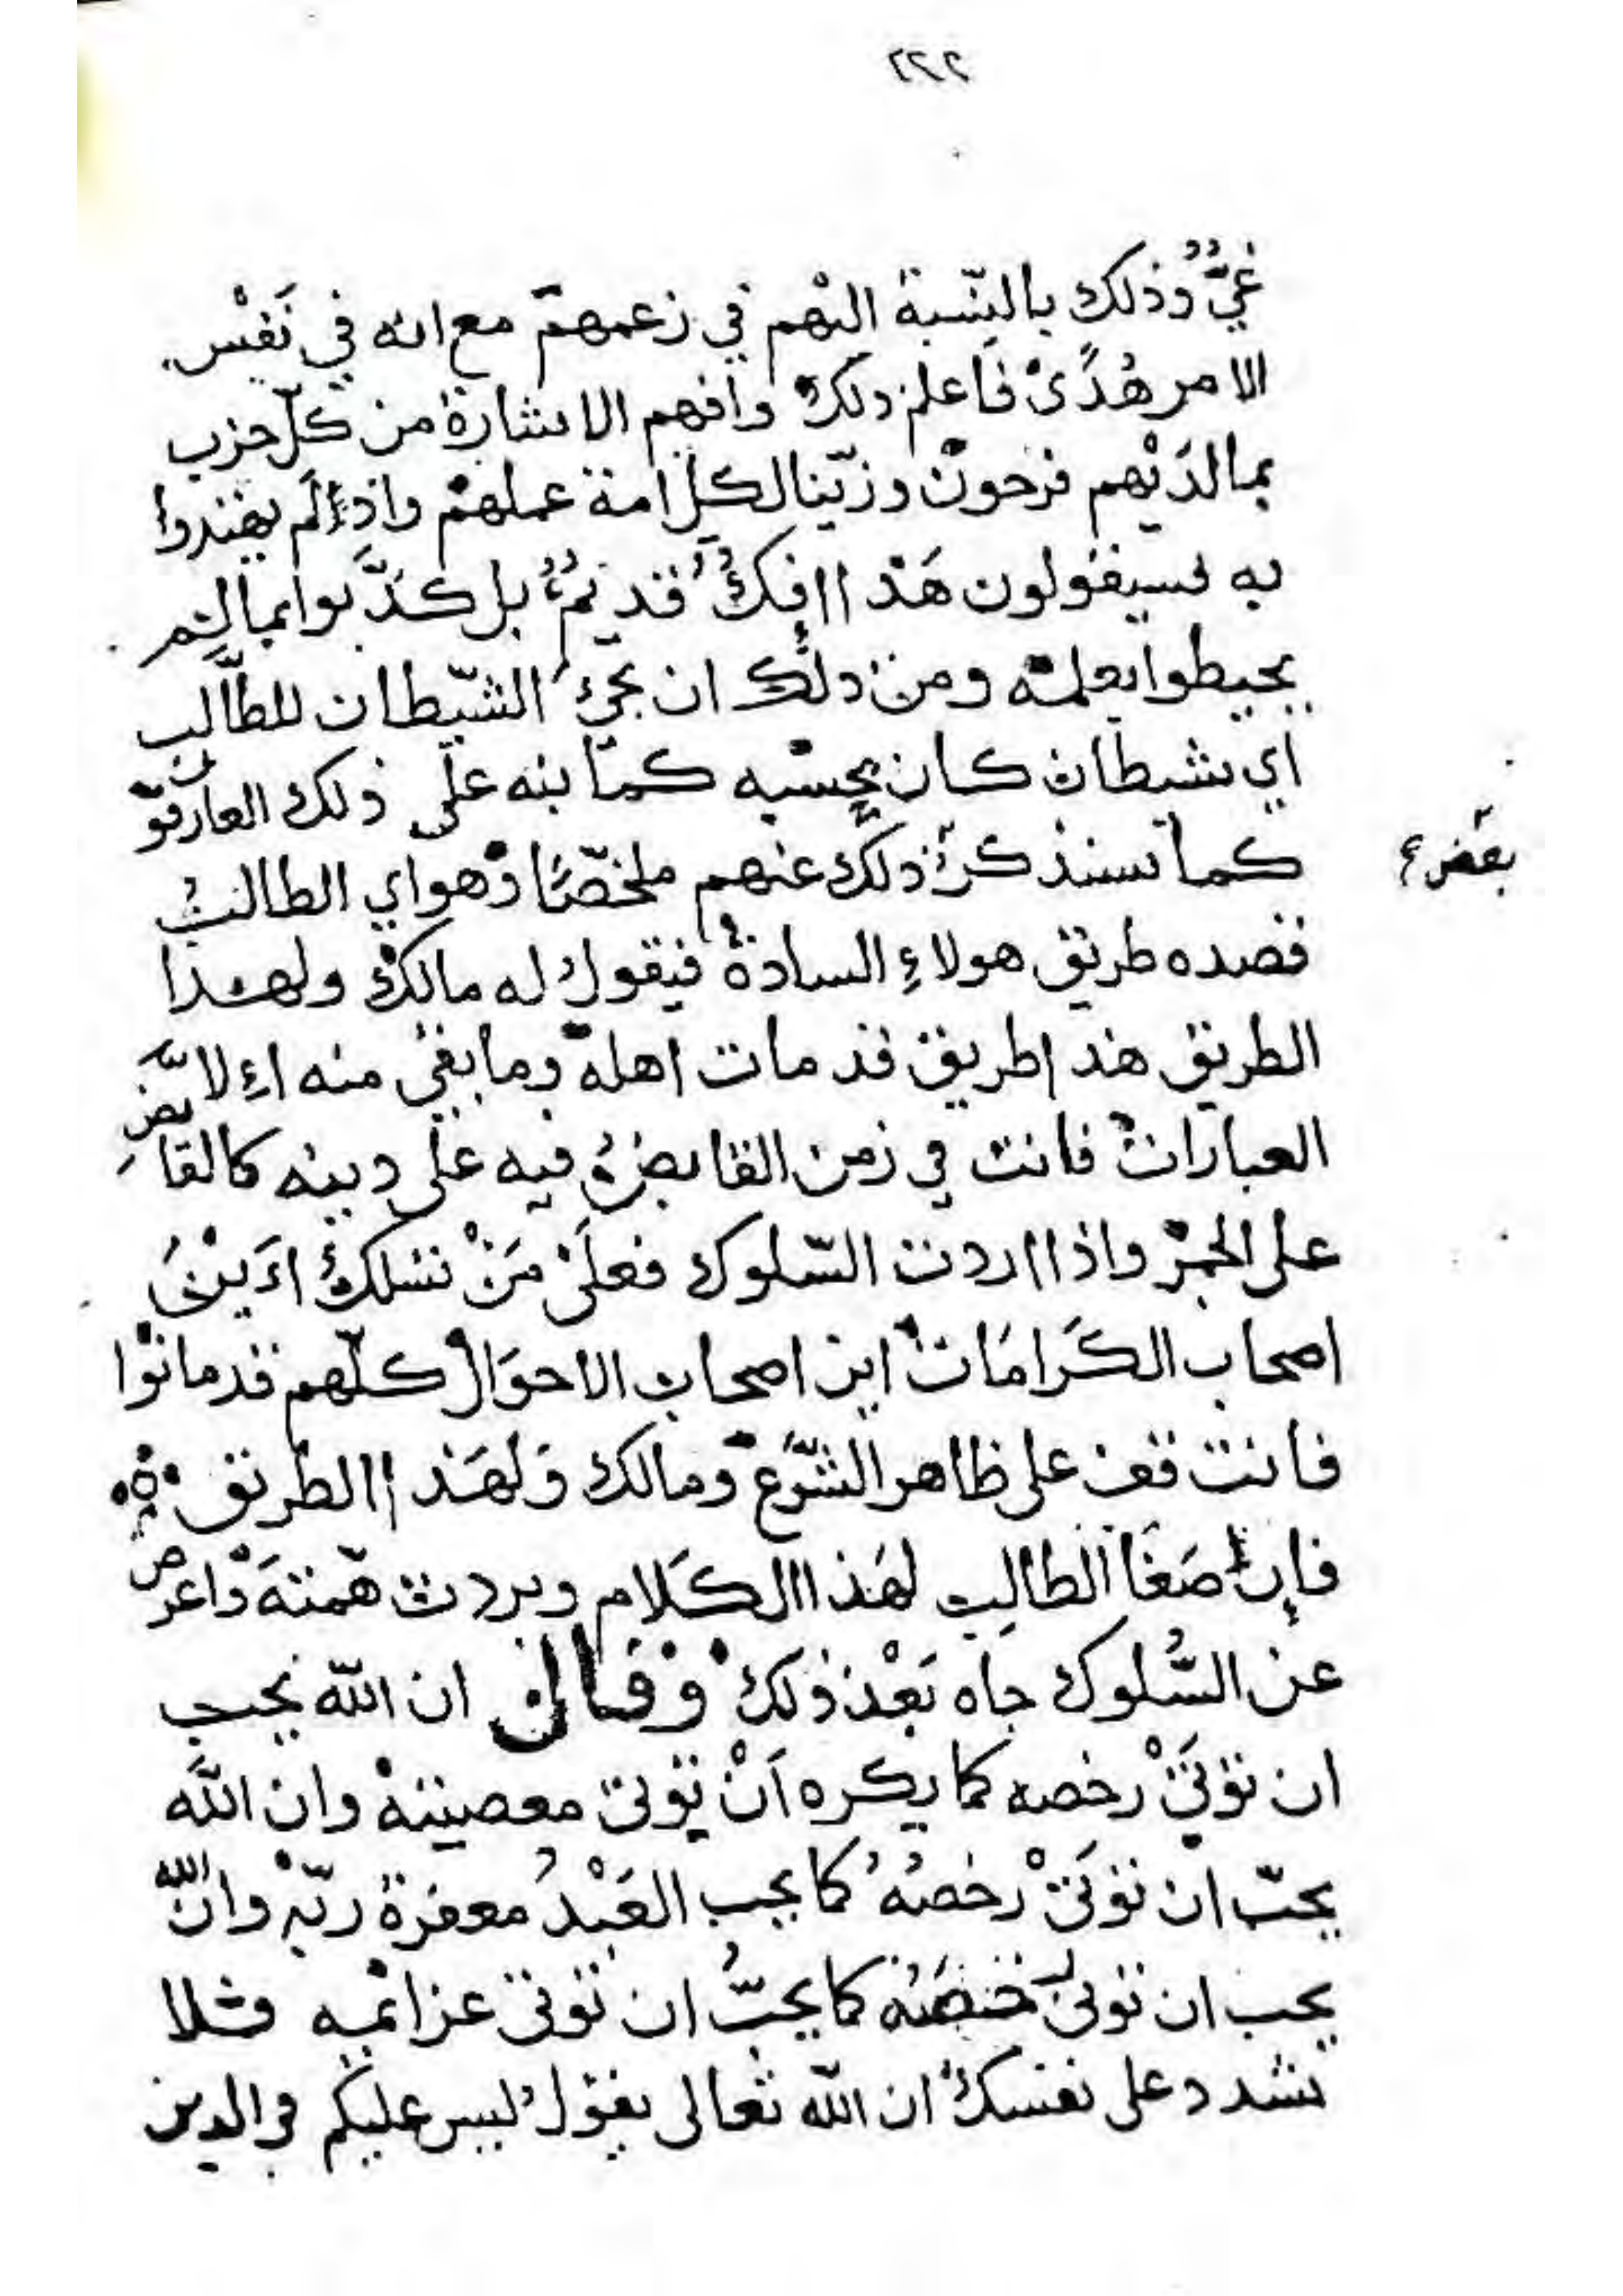 ٢٢٢
غيٌّ وذلك بالنّسبة اليْهم في زعمهمْ مع انه في نَفْس
الامر هُدًىْ فاعلم ذلكْ وافهم الاشارة من كلّ حزب
بمالدَيْهم فرحونْ وزيّنا لكلّ امة عملهمْ واذءلَم يهتدوا
به فسيقولون هَذا اإفكٌ قديمٌ بل كذَّبوا بما لم
يحيطوا بعلمه ومن ذلك ان يجيْ الشيّطان للطَّالب
اي شيطان كان بحسْبه كما نبه على ذلك العارفون
كما سنذكرُ ذلك عنهم ملخّصًا وْهو اي الطالبُ
بعض
قصده طريق هولاءِ السادةْ فيقول له مالكْ ولهذا
الطريق هذا طريق قد مات اهلهْ وما بقي منه اءِلا بعض
العباراتْ فانت في زمن القابضُ فيه على دينه كالقابضِ
على الجمرْ واذا اردت السّلوك فعلَىْ مَنْ تسْلكُ اَءيْنَ
اصحاب الكَرامَاتْ اين اصحاب الاحوَالْ كلّهم قد ماتوْا
فانت قف على ظاهر الشّرْع ومالك وَلهَذا الطريق ۞
فإن اصغَا الطالِب لهَذا الكَلام وبردت همّتهَ وْاعرض
عن السُّلوك جاه بَعْد ذلكْ وْقال ان اللّه يحب
ان توْتَىْ رخصه كما يكره اَنْ توْتىَ معصيتهْ وان اللَّه
يحبّ ان توْتَىْ رخصُهُ كما يحب العَبْدُ مغفرة ربّهْ وانّ اللّه
يحب ان توْتى رخصَهُ كما يحبُّ ان توْتى عزائمه فلا
تشدد على نفسكْ ان اللّه تعالى يقول ليس عليكم في الدين